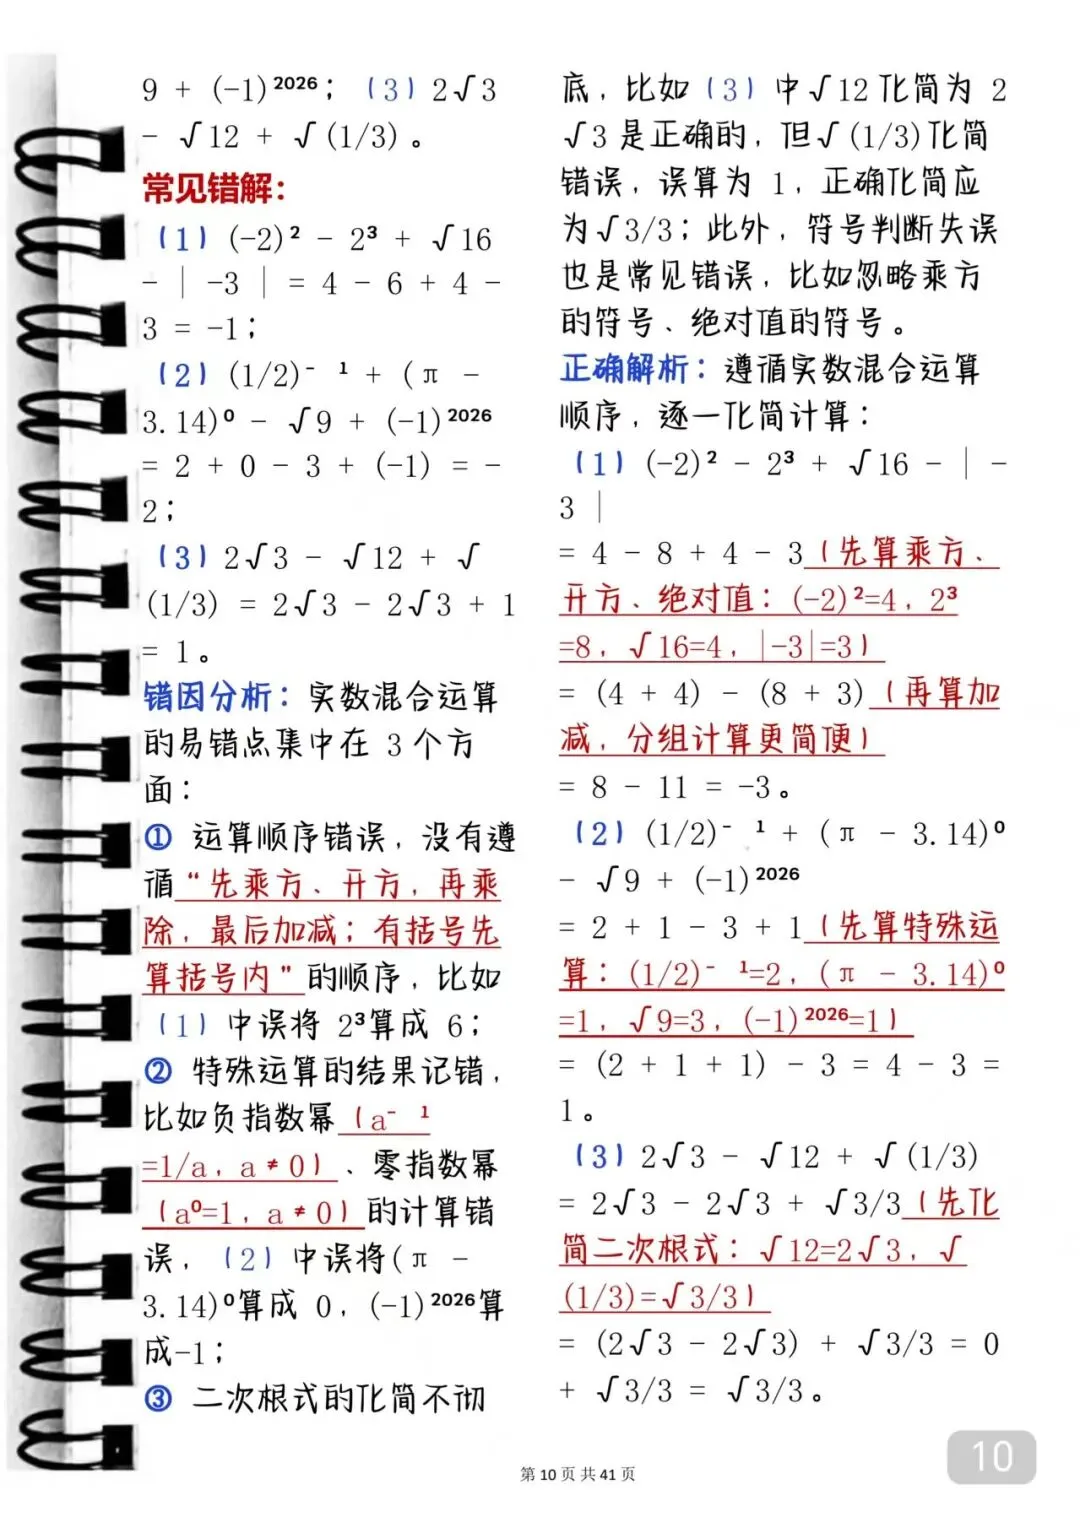 9 + (-1)²⁰²⁶；（3）2√3
- √12 + √(1/3)。
常见错解：
（1）(-2)² - 2³ + √16
- | -3 | = 4 - 6 + 4 -
3 = -1；
（2）(1/2)⁻ ¹ + (π -
3.14)⁰ - √9 + (-1)²⁰²⁶
= 2 + 0 - 3 + (-1) = -
2；
（3）2√3 - √12 + √
(1/3) = 2√3 - 2√3 + 1
= 1。
错因分析：实数混合运算
的易错点集中在 3个方
面：
① 运算顺序错误，没有遵
循“先乘方、开方，再乘
除，最后加减；有括号先
算括号内”的顺序，比如
（1）中误将 2³算成 6；
② 特殊运算的结果记错，
比如负指数幂（a⁻ ¹
=1/a，a≠0）、零指数幂
（a⁰=1，a≠0）的计算错
误，（2）中误将(π -
3.14)⁰算成 0，(-1)²⁰²⁶算
成-1；
③ 二次根式的化简不彻
底，比如（3）中√12化简为 2
√3是正确的，但√(1/3)化简
错误，误算为 1，正确化简应
为√3/3；此外，符号判断失误
也是常见错误，比如忽略乘方
的符号、绝对值的符号。
正确解析：遵循实数混合运算
顺序，逐一化简计算：
（1）(-2)² - 2³ + √16 - | -
3 |
= 4 - 8 + 4 - 3（先算乘方、
开方、绝对值：(-2)²=4，2³
=8，√16=4，|-3|=3）
= (4 + 4) - (8 + 3)（再算加
减，分组计算更简便）
= 8 - 11 = -3。
（2）(1/2)⁻ ¹ + (π - 3.14)⁰
- √9 + (-1)²⁰²⁶
= 2 + 1 - 3 + 1（先算特殊运
算：(1/2)⁻ ¹=2，(π - 3.14)⁰
=1，√9=3，(-1)²⁰²⁶=1）
= (2 + 1 + 1) - 3 = 4 - 3 =
1。
（3）2√3 - √12 + √(1/3)
= 2√3 - 2√3 + √3/3（先化
简二次根式：√12=2√3，√
(1/3)=√3/3）
= (2√3 - 2√3) + √3/3 = 0
+ √3/3 = √3/3。
第 10 页 共 41 页
10